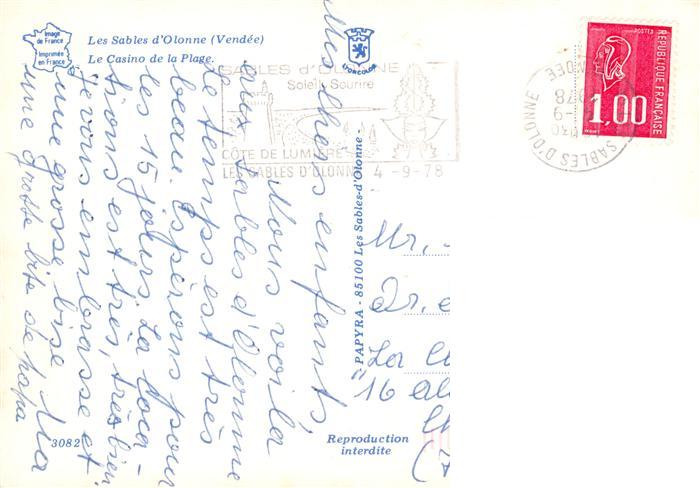 Image
de France
Imprimée
en France
Les Sables d'Olonne (Vendée)
Le Casino de la Plage.
LYONCOLOR
SABLES d'OLONNE
Soleil Sourire
CÔTE DE LUMIÈRE
LES SABLES D'OLONNE 4-9-78
SABLES D'OLONNE
POSTES
REPUBLIQUE FRANÇAISE
1,00
Mes chers enfants,
Nous voilà
aux Sables d'Olonne
le temps est très
beau. Espérons pour
les 15 jours La loca-
tion est très, très bien
Je vous embrasse et
une grosse bise
une grosse bite de papa
Mr.
La
16
"PAPYRA - 85100 Les Sables-d'Olonne -
Reproduction
interdite
3082